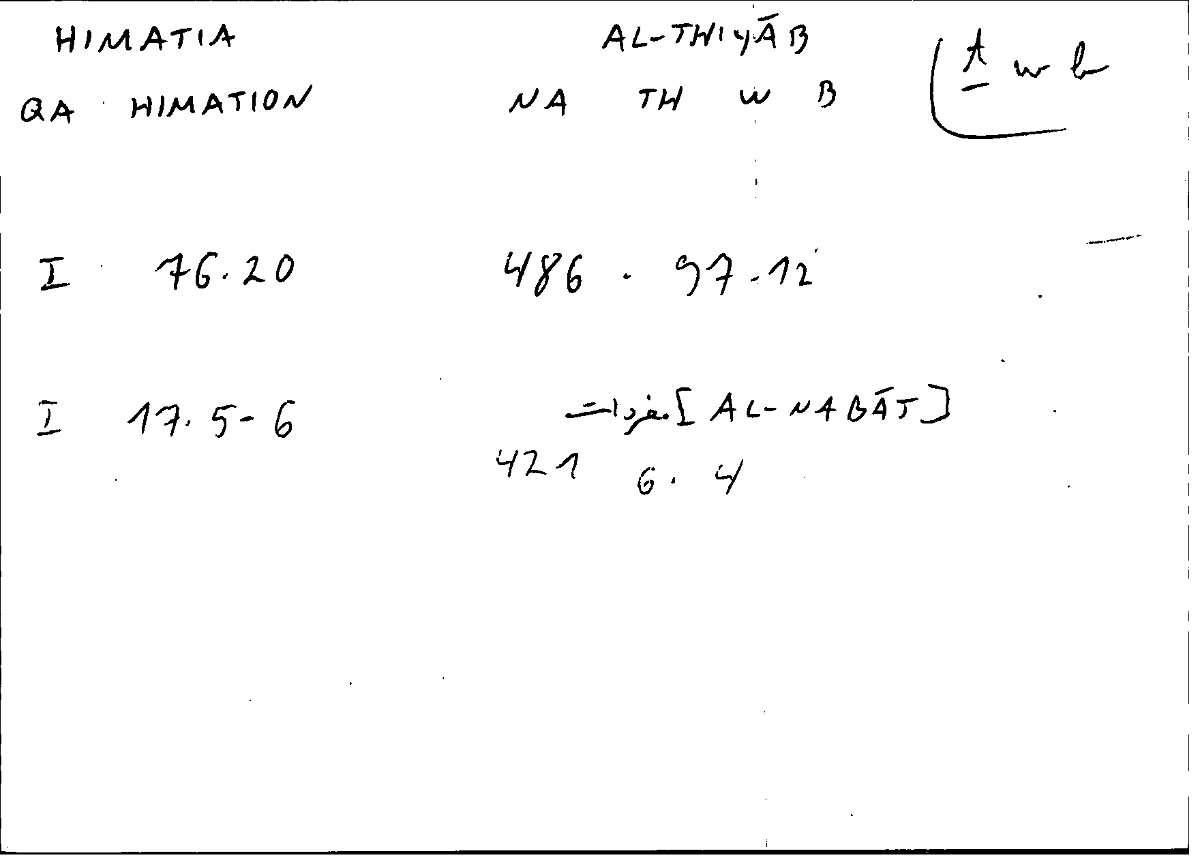 HIMATIA AL-THIYĀB
QA HIMATION NA TH W B ṯ w b
I 76.20 486 . 97.12
I 17.5-6 مفردات [AL-NABĀT]
421 6. 4